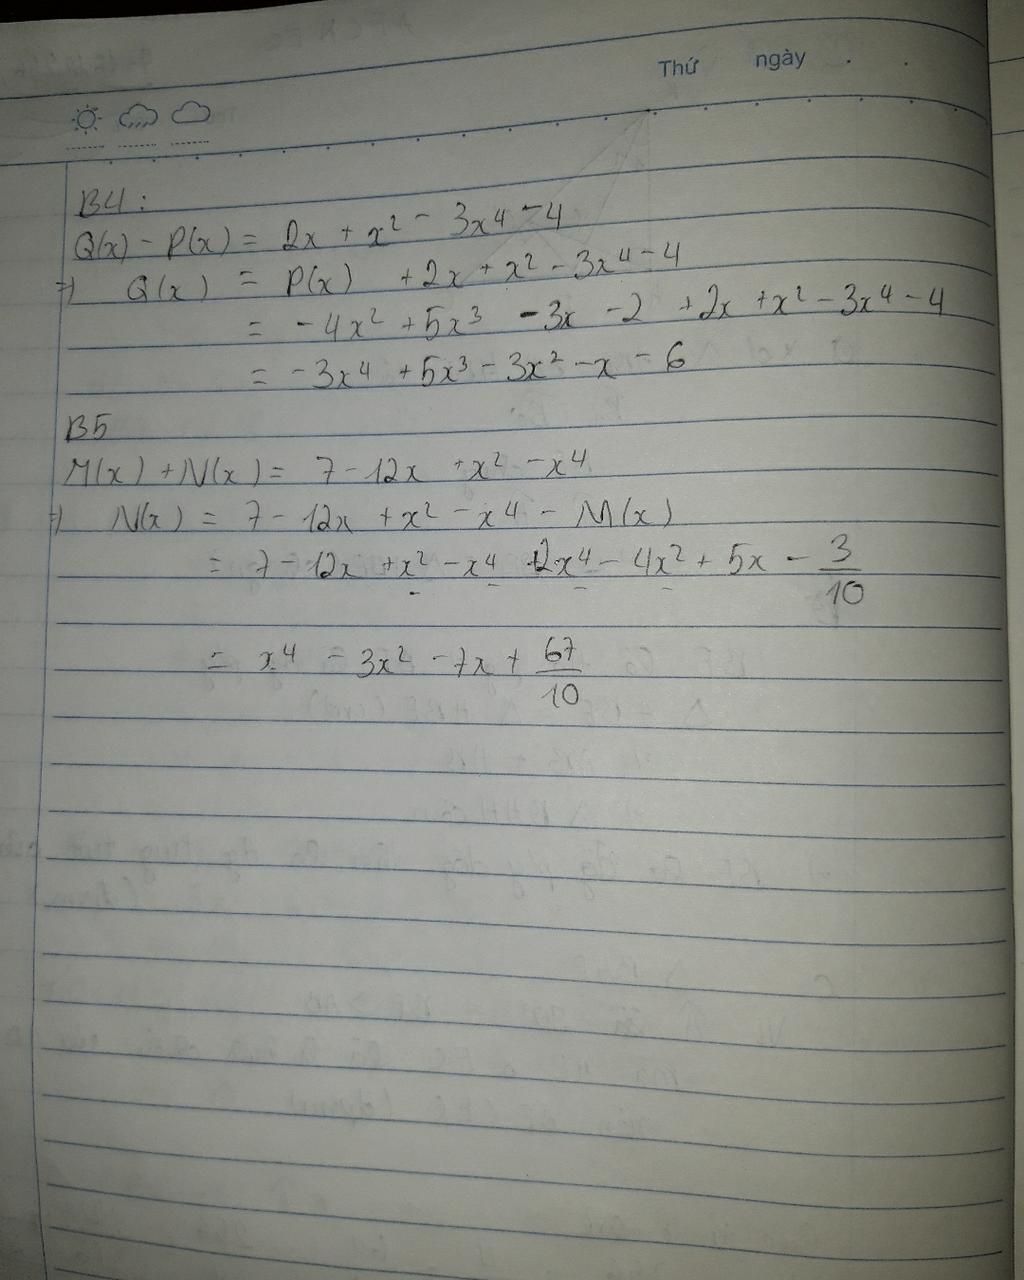 Thứ ngày . .
B4:
Q(x) - P(x) = 2x + x² - 3x⁴ - 4
=) Q(x) = P(x) + 2x + x² - 3x⁴ - 4
= - 4x² + 5x³ - 3x - 2 + 2x + x² - 3x⁴ - 4
= - 3x⁴ + 5x³ - 3x² - x - 6
B5
M(x) + N(x) = 7 - 12x + x² - x⁴
=) N(x) = 7 - 12x + x² - x⁴ - M(x)
= 7 - 12x + x² - x⁴ + 2x⁴ - 4x² + 5x - 3/10
= x⁴ - 3x² - 7x + 67/10